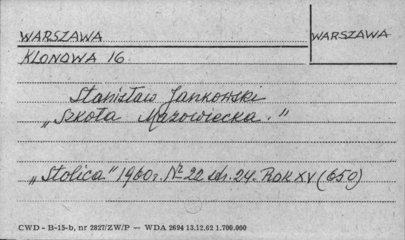 WARSZAWA WARSZAWA
KLONOWA 16
Stanisław Jankowski
„Szkoła Mazowiecka."
„Stolica" 1960r. Nr 22 str. 24. Rok XV (650)
CWD - B-15-b, nr 2827/ZW/P — WDA 2694 13.12.62 1.700.000